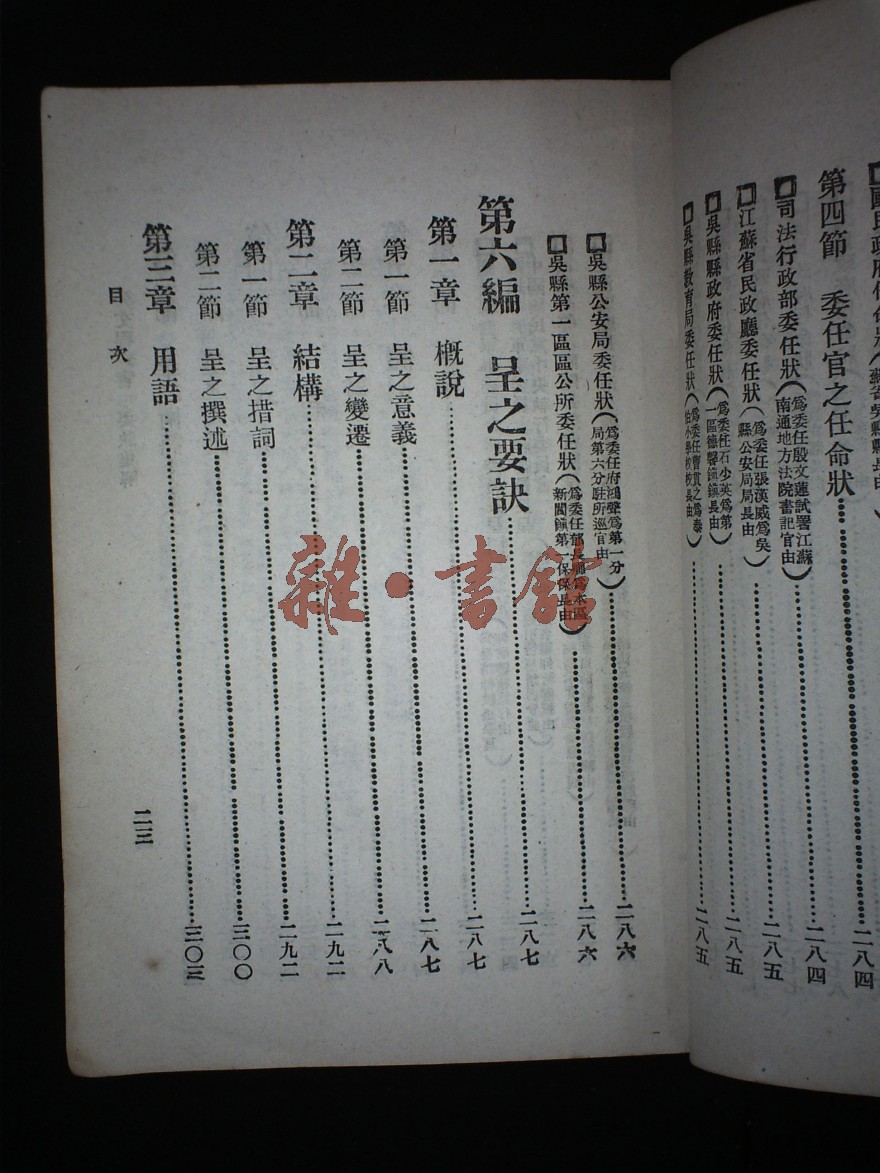 第四節　委任官之任命狀……二八四
司法行政部委任狀（爲委任殷文蓮試署江蘇南通地方法院書記官由）……二八四
江蘇省民政廳委任狀（爲委任張漢威爲吳縣公安局局長由）……二八五
吳縣縣政府委任狀（爲委任石少英爲第一區德馨鎮鎮長由）……二八五
吳縣教育局委任狀……二八五
吳縣公安局委任狀（爲委任府鴻聲爲第一分局第六分駐所巡官由）……二八六
吳縣第一區區公所委任狀（爲委任郁長爲本區新閶鎮第一保保長由）……二八六
第六編　呈之要訣……二八七
第一章　概說……二八七
第一節　呈之意義……二八七
第二節　呈之變遷……二八八
第二章　結構……二九二
第一節　呈之措詞……二九二
第二節　呈之撰述……三〇〇
第三章　用語……三〇三
目次
二三
雜·書館